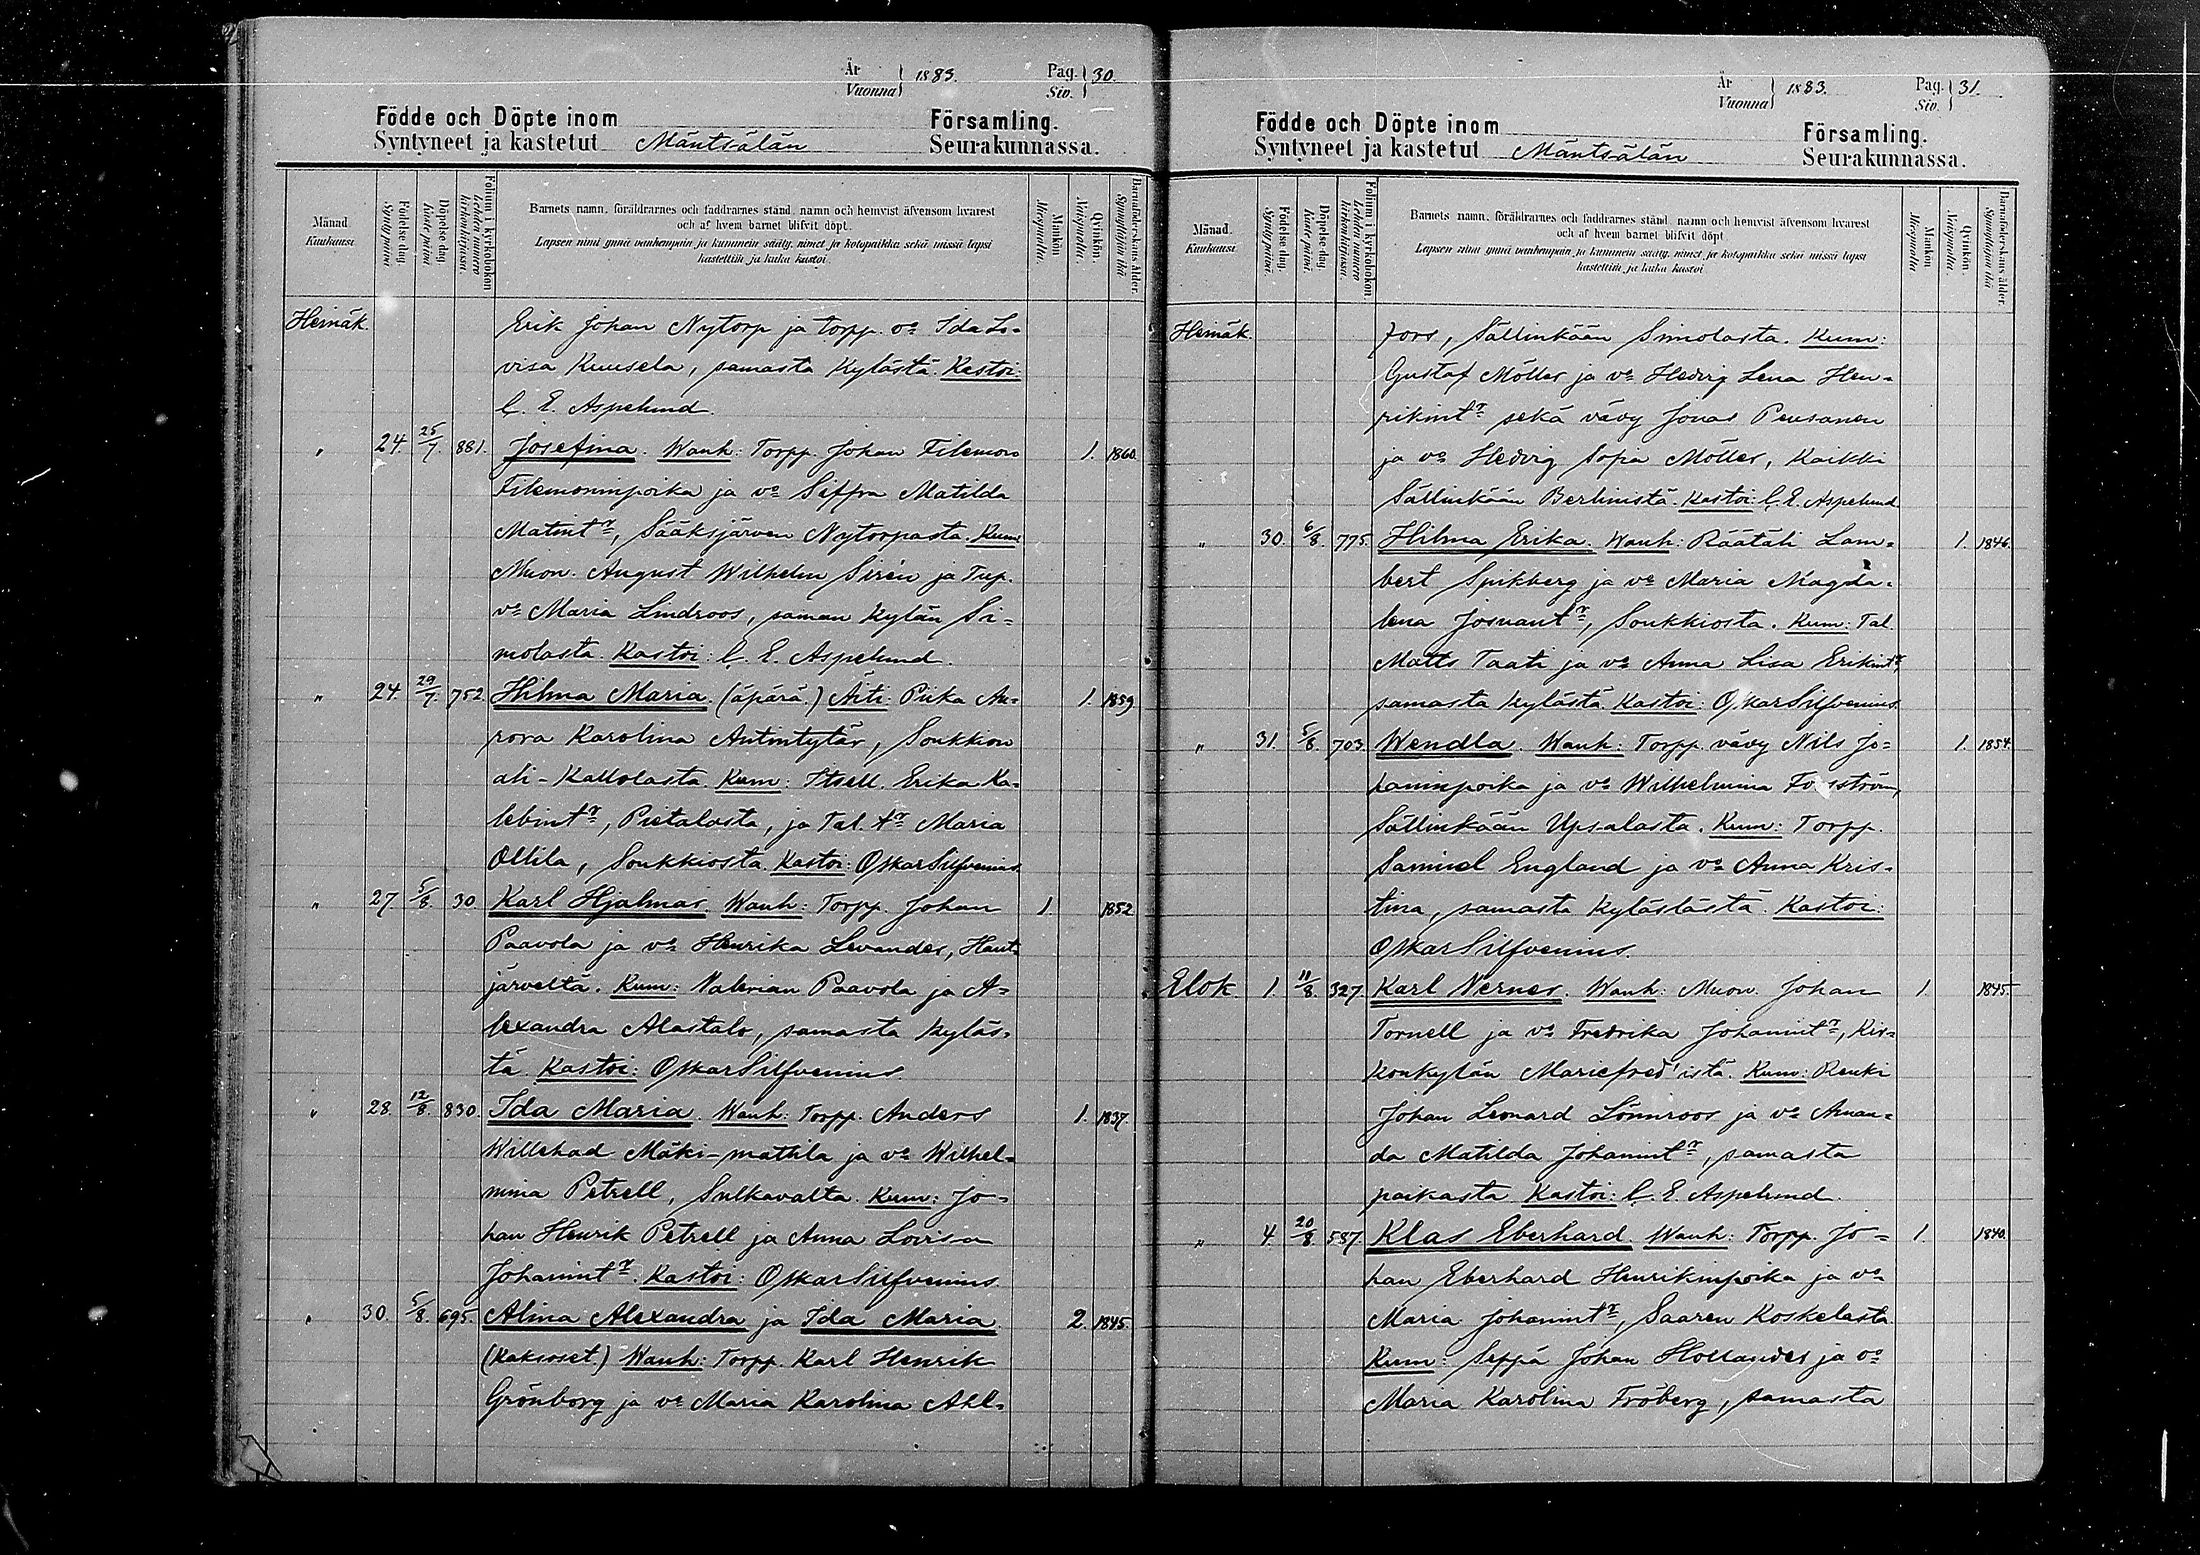 År
Vuonna } 1883. Pag.
Siv. } 30.
Födde och Döpte inom Församling.
Syntyneet ja kastetut Mäntsälän Seurakunnassa.
Månad. Kuukausi
Födelse dag. Synty päivä
Döpelse dag. Kaste päivä
Folium i kyrkoboken Lehden numero kirkonkirjassa.
Barnets namn, föräldrarnes och faddrarnes stånd, namn och hemvist äfvensom hvarest
och af hvem barnet blifvit döpt.
Lapsen nimi ynnä vanhempain ja kummein sääty, nimet ja kotopaikka sekä missä lapsi
kastettiin ja kuka kastoi.
Mankön Miespuolia.
Qvinkön. Naispuolia.
Barnaföderskans ålder. Synnyttäjän ikä
Heinäk. Erik Johan Nytorp ja torpp. vo Ida Lo-
visa Kuusela, samasta kylästä. Kastoi:
C. E. Aspelund.
" 24. 25/7. 881. Josefina. Wanh: Torpp. Johan Filemon 1. 1860.
Filemoninpoika ja vo Siffra Matilda
Matintr, Sääksjärven Nytorpasta. Kum:
Muon. August Wilhelm Sirén ja Tup.
vo Maria Lindroos, saman kylän Si-
molasta. Kastoi: C. E. Aspelund.
" 24. 29/7. 752. Hilma Maria. (äpärä.) Äiti: Piika Au- 1. 1859
rora Karolina Antintytär, Soukkion
ali-Kallolasta. Kum: Itsell. Erika Ka-
lebintr, Pietalasta, ja Tal. tr Maria
Ollila, Soukkiosta. Kastoi: Oskar Silfvenius.
" 27. 5/8. 30 Karl Hjalmar. Wanh: Torpp. Johan 1. 1852.
Paavola ja vo Henrika Levander, Haut-
järveltä. Kum: Valerian Paavola ja A-
lexandra Alastalo, samasta kyläs-
tä. Kastoi: Oskar Silfvenius.
" 28. 12/8. 830. Ida Maria. Wanh: Torpp. Anders 1. 1837.
Willehad Mäki-mattila ja vo Wilhel-
mina Petrell, Sulkavalta. Kum: Jo-
han Henrik Petrell ja Anna Lovisa
Johanintr. Kastoi: Oskar Silfvenius.
" 30. 5/8. 695. Alina Alexandra ja Ida Maria. 2. 1845.
(Kaksoset.) Wanh: Torpp. Karl Henrik
Grönborg ja vo Maria Karolina Ahl-
År
Vuonna } 1883. Pag.
Siv. } 31.
Födde och Döpte inom Församling.
Syntyneet ja kastetut Mäntsälän Seurakunnassa.
Månad. Kuukausi
Födelse dag. Synty päivä.
Döpelse dag. Kaste päivä
Folium i kyrkoboken Lehden numero kirkonkirjassa.
Barnets namn, föräldrarnes och faddrarnes stånd, namn och hemvist äfvensom hvarest
och af hvem barnet blifvit döpt.
Lapsen nimi ynnä vanhempain ja kummein sääty, nimet ja kotopaikka sekä missä lapsi
kastettiin ja kuka kastoi.
Mankön Miespuolia
Qvinkön. Naispuolia.
Barnaföderskans ålder. Synnyttäjän ikä
Heinäk. fors, Sällinkään Simolasta. Kum:
Gustaf Möller ja vo Hedvig Lena Hen-
rikintr sekä vävy Jonas Pensanen
ja vo Hedvig Sofia Möller, Kaikki
Sällinkään Berlinistä. Kastoi: C. E. Aspelund
" 30. 6/8. 775. Hilma Erika. Wanh: Räätäli Lam- 1. 1846.
bert Spikberg ja vo Maria Magda-
lena Josuantr, Soukkiosta. Kum: Tal.
Matts Taati ja vo Anna Lisa Erikintr,
samasta kylästä. Kastoi: Oskar Silfvenius.
" 31. 5/8. 703. Wendla. Wanh: Torpp. vävy Nils Jo- 1. 1854.
haninpoika ja vo Wilhelmina Forsström,
Sällinkään Upsalasta. Kum: Torpp.
Samuel England ja vo Anna Kris-
tina, samasta kylästästä. Kastoi:
Oskar Silfvenius.
Elok. 1. 11/8. 327. Karl Verner. Wanh: Muon. Johan 1. 1845.
Tornell ja vo Fredrika Johanintr, Kir-
konkylän Mariefred'istä. Kum: Renki
Johan Leonard Lönnroos ja vo Aman-
da Matilda Johanintr, samasta
paikasta. Kastoi: C. E. Aspelund.
" 4. 20/8. 587. Klas Eberhard. Wanh: Torpp. Jo- 1. 1840.
han Eberhard Henrikinpoika ja vo
Maria Johanintr, Saaren Koskelasta.
Kum: Seppä Johan Hollander ja vo
Maria Karolina Fröberg, samasta